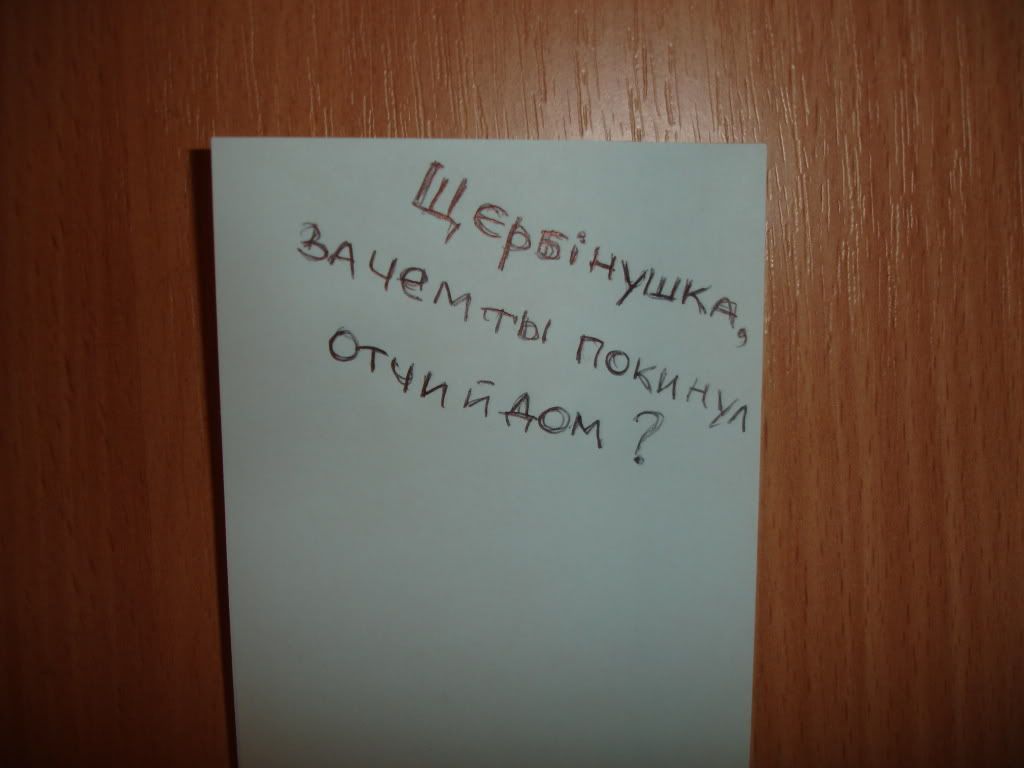 Щєрбінушка,
зачем ты покинул
отчий дом?